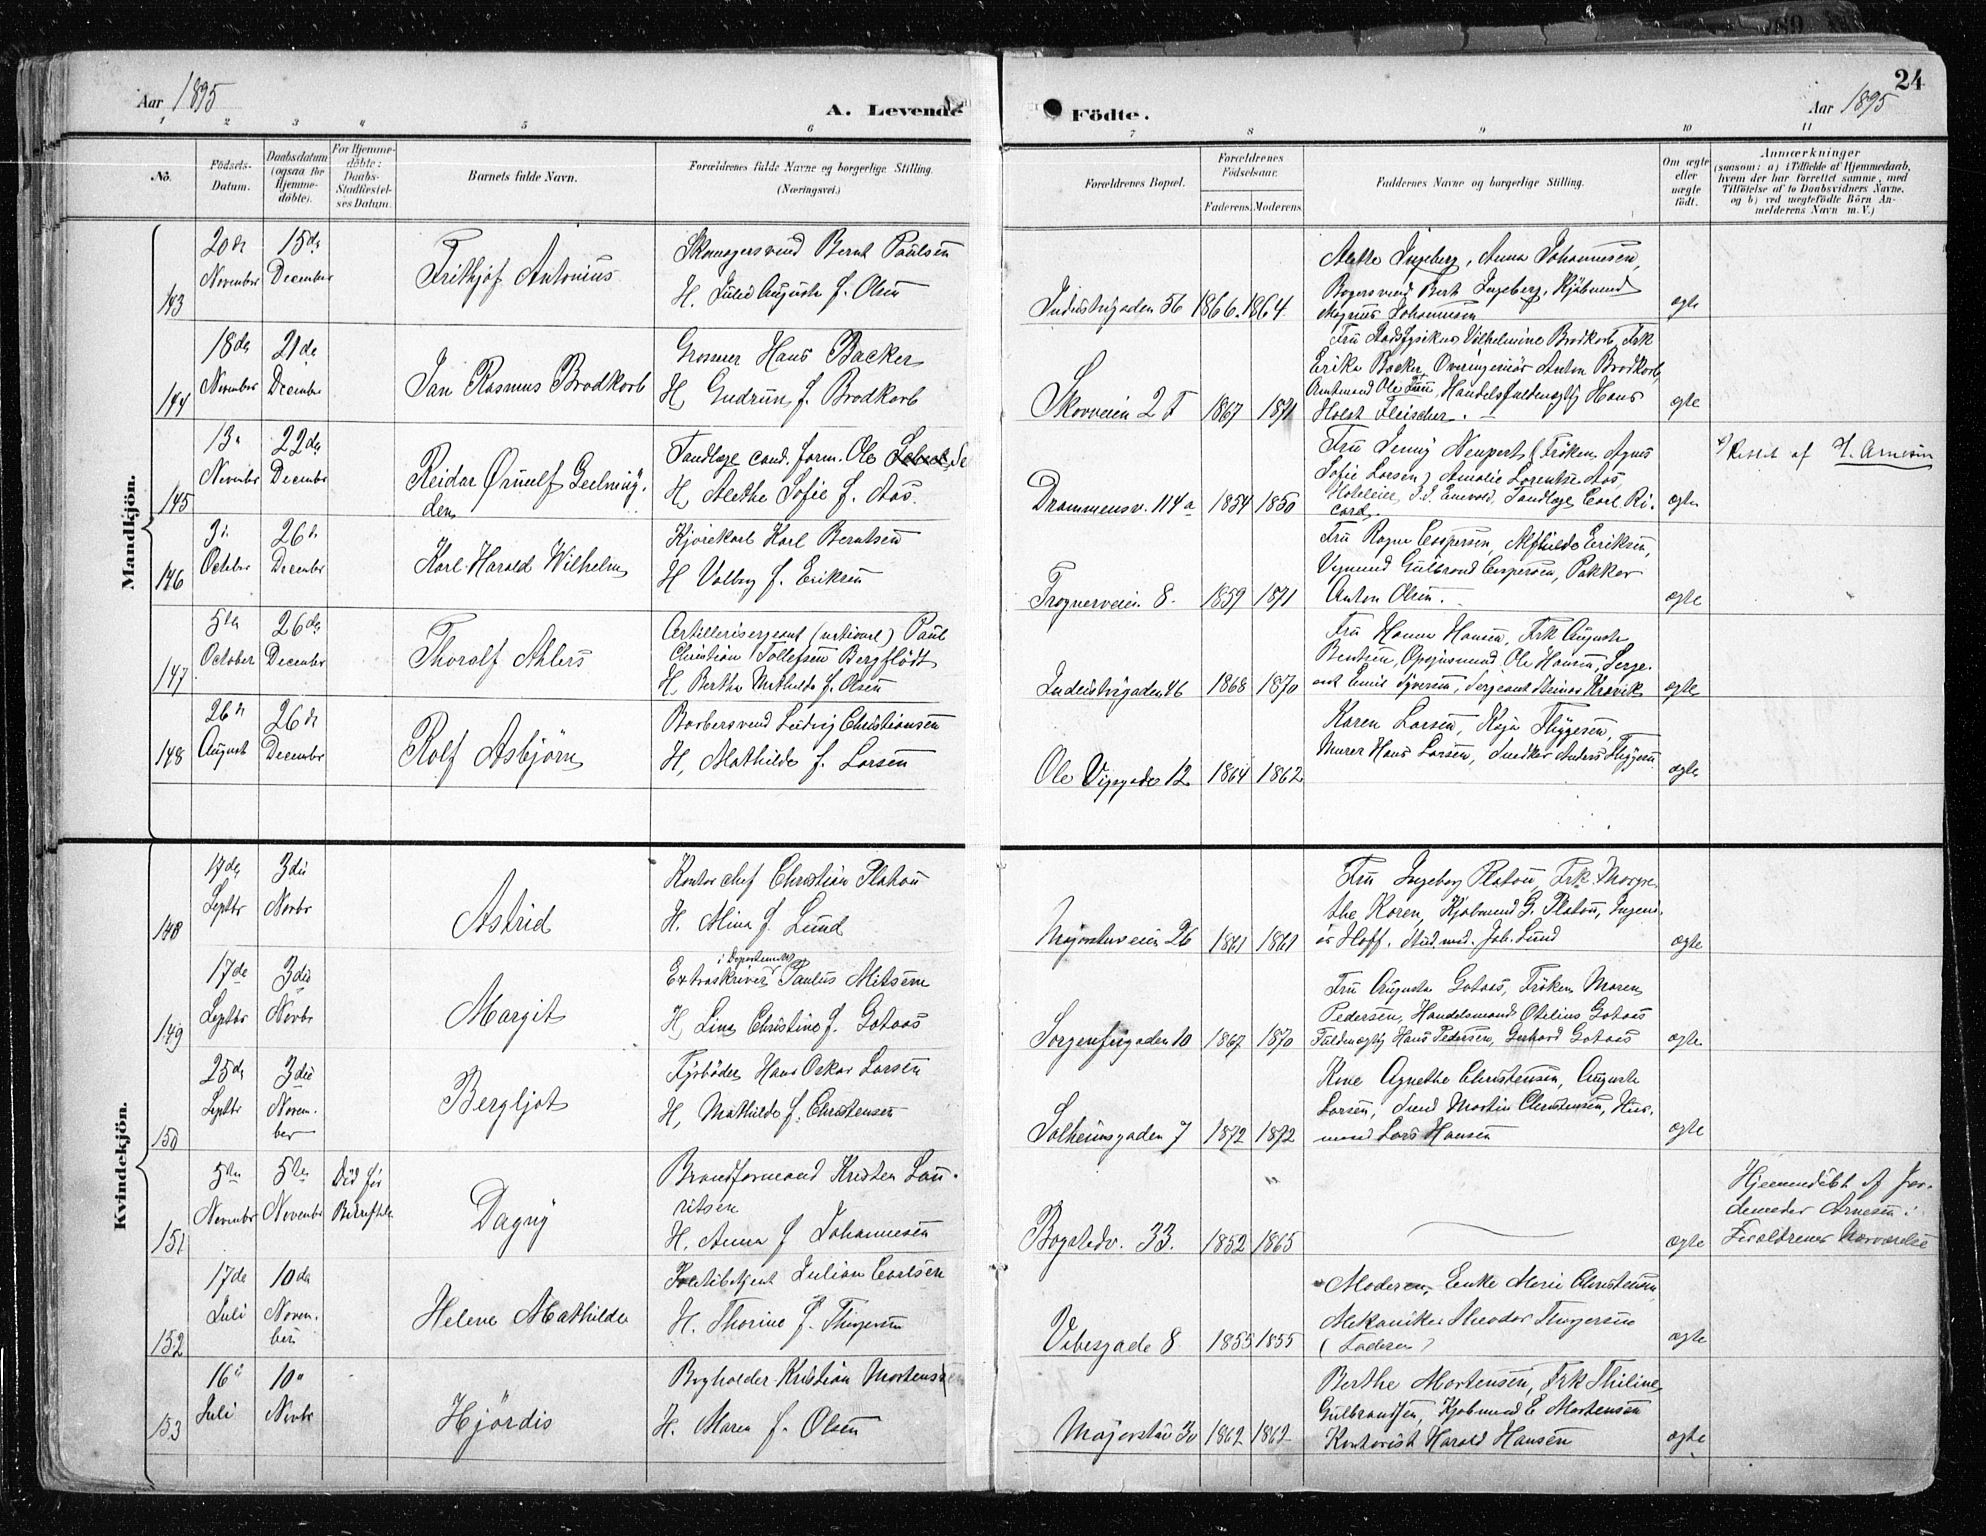 Aar 1895
A. Levende Födte.
Aar 1895
24
1 2 3 4 5 6 7 8 9 10 11
No.
Födsels-
Datum.
Daabsdatum
(ogsaa for
Hjemme-
döbte).
For Hjemme-
döbte:
Daabs-
Stadfæstel-
ses Datum.
Barnets fulde Navn.
Forældrenes fulde Navne og borgerlige Stilling.
(Næringsvei.)
Forældrenes Bopæl.
Forældrenes
Födselsaar.
Faderens. Moderens.
Faddernes Navne og borgerlige Stilling.
Om ægte
eller
uægte
födt.
Anmærkninger
(saasom: a) i Tilfælde af Hjemmedaab,
hvem der har forrettet samme, med
Tilföielse af to Daabsvidners Navne,
og b) ved uægtefödte Börn An-
melderens Navn m. V.)
Mandkjön.
143
20de November
15de December
Frithjof Antonius
Skomagersvend Bernt Paulsen
H. Julie Augusta f. Olsen
Industrigaden 56
1866. 1864
Alette Ingeberg, Anna Johannesen,
Bagersvend Bert Ingeberg, Kjöbmand
Magnus Johannesen
ægte
144
18de November
21de December
Jan Rasmus Brodkorb
Grosserer Hans Backer
H. Gudrun f. Brodkorb
Skovveien 2 F
1867 1871
Fru Stadsfysikus Vilhelmine Brodkorb, Frk
Erika Backer, Overingeniör Anton Brodkorb,
Amtmand Ole Fuu, Handelsfuldmægtig Hans
Holst Fleischer.
ægte
145
13. November
22de December
Reidar Ørnulf Geelmuy-
den
Tandlæge cand. farm. Ole
H. Alethe Sofie f. Aas.
Drammensv. 114a
1854 1850
Fru Jenny Neupert (Fröken Agnes
Sofie Larsen) Amalie Lorentse Aas,
Hoteleier J. J. Enevold, Tandlæge Carl Ri-
card.
ægte
Rettet af H. Arnesen
146
9. October
26de December
Karl Harald Wilhelm
Kjörekarl Karl Berntsen
H Valborg f. Eriksen
Frognerveien 8.
1859 1871
Fru Ragna Caspersen, Alfhilde Eriksen,
Vognmand Gulbrand Caspersen, Pakker
Anton Olsen.
ægte
147
5te October
26de December
Thoralf Ahlers
Artillerisergeant (national) Paul
Christian Tollefsen Bergflödt
H. Bertha Mathilde f. Olsen
Industrigaden 46
1868 1870
Fru Hanna Hansen, Frk Augusta
Bentsen, Opsynsmand Ole Hansen, Serge-
ant Emil Syversen, Sergeant Steinar Kravik
ægte
148
26de August
26de December
Rolf Asbjörn
Barbersvend Ludvig Christiansen
H, Mathilde f. Larsen
Ole Vigsgade 12
1864 1862
Karen Larsen, Kaja Thygesen,
Murer Hans Larsen, Snedker Anders Thygesen
ægte
Kvindekjön.
148
17de Septbr
3die Novbr
Astrid
Kontorchef Christian Platou
H. Alina f. Lund
Majorstuveien 26
1861 1861
Fru Ingeborg Platou, Frk. Margre-
the Koren, Kjöbmand G. Platou, Ingeni-
ör Hoff, Stud. med. Joh. Lund
ægte
149
17de Septbr
3die Novbr
Margit
i Departementet
Extraskriver Paulus Nilsen
H, Lina Christine f. Gotaas
Sorgenfrigaden 10
1867 1870
Fru Augusta Gotaas, Fröken Maren
Pedersen, Handelsmand Otelius Gotaas
Fuldmægtig Hans Pedersen, Gerhard Gotaas
ægte
150
25de Septbr
3die Novem-
ber
Bergljot
Fyrböder Hans Oskar Larsen
H, Mathilde f. Christensen
Solheimsgaden 7
1872 1872
Kone Agnethe Christensen, Augusta
Larsen, Smed Martin Christensen, Hus-
mand Lars Hansen
ægte
151
5te November
5te November
Död för
Bekræftelse
Dagny
Brandformand Kristen Lau-
ritsen
H. Anna f Johannesen
Bogstadv. 33.
1852 1865
ægte
Hjemmedöbt af Jor-
demoder Arnesen i
Forældrenes Nærværelse
152
17de Juli
10de Novem-
ber
Helene Mathilde
Politibetjent Julian Carlsen
H. Thorine f. Thorgersen
Vibesgade 8
1855 1855
Moderen, Enke Marie Christensen,
Mekaniker Theodor Thorgersen
(Faderen)
ægte
153
16. Juli
10. Novbr
Hjördis
Bogholder Kristian Mortensen
H. Maren f. Olsen
Majorstuv 30
1862 1862
Berthe Mortensen, Frk Thiline
Gulbrandsen, Kjöbmand E Mortensen
Kontorist Harald Hansen
ægte